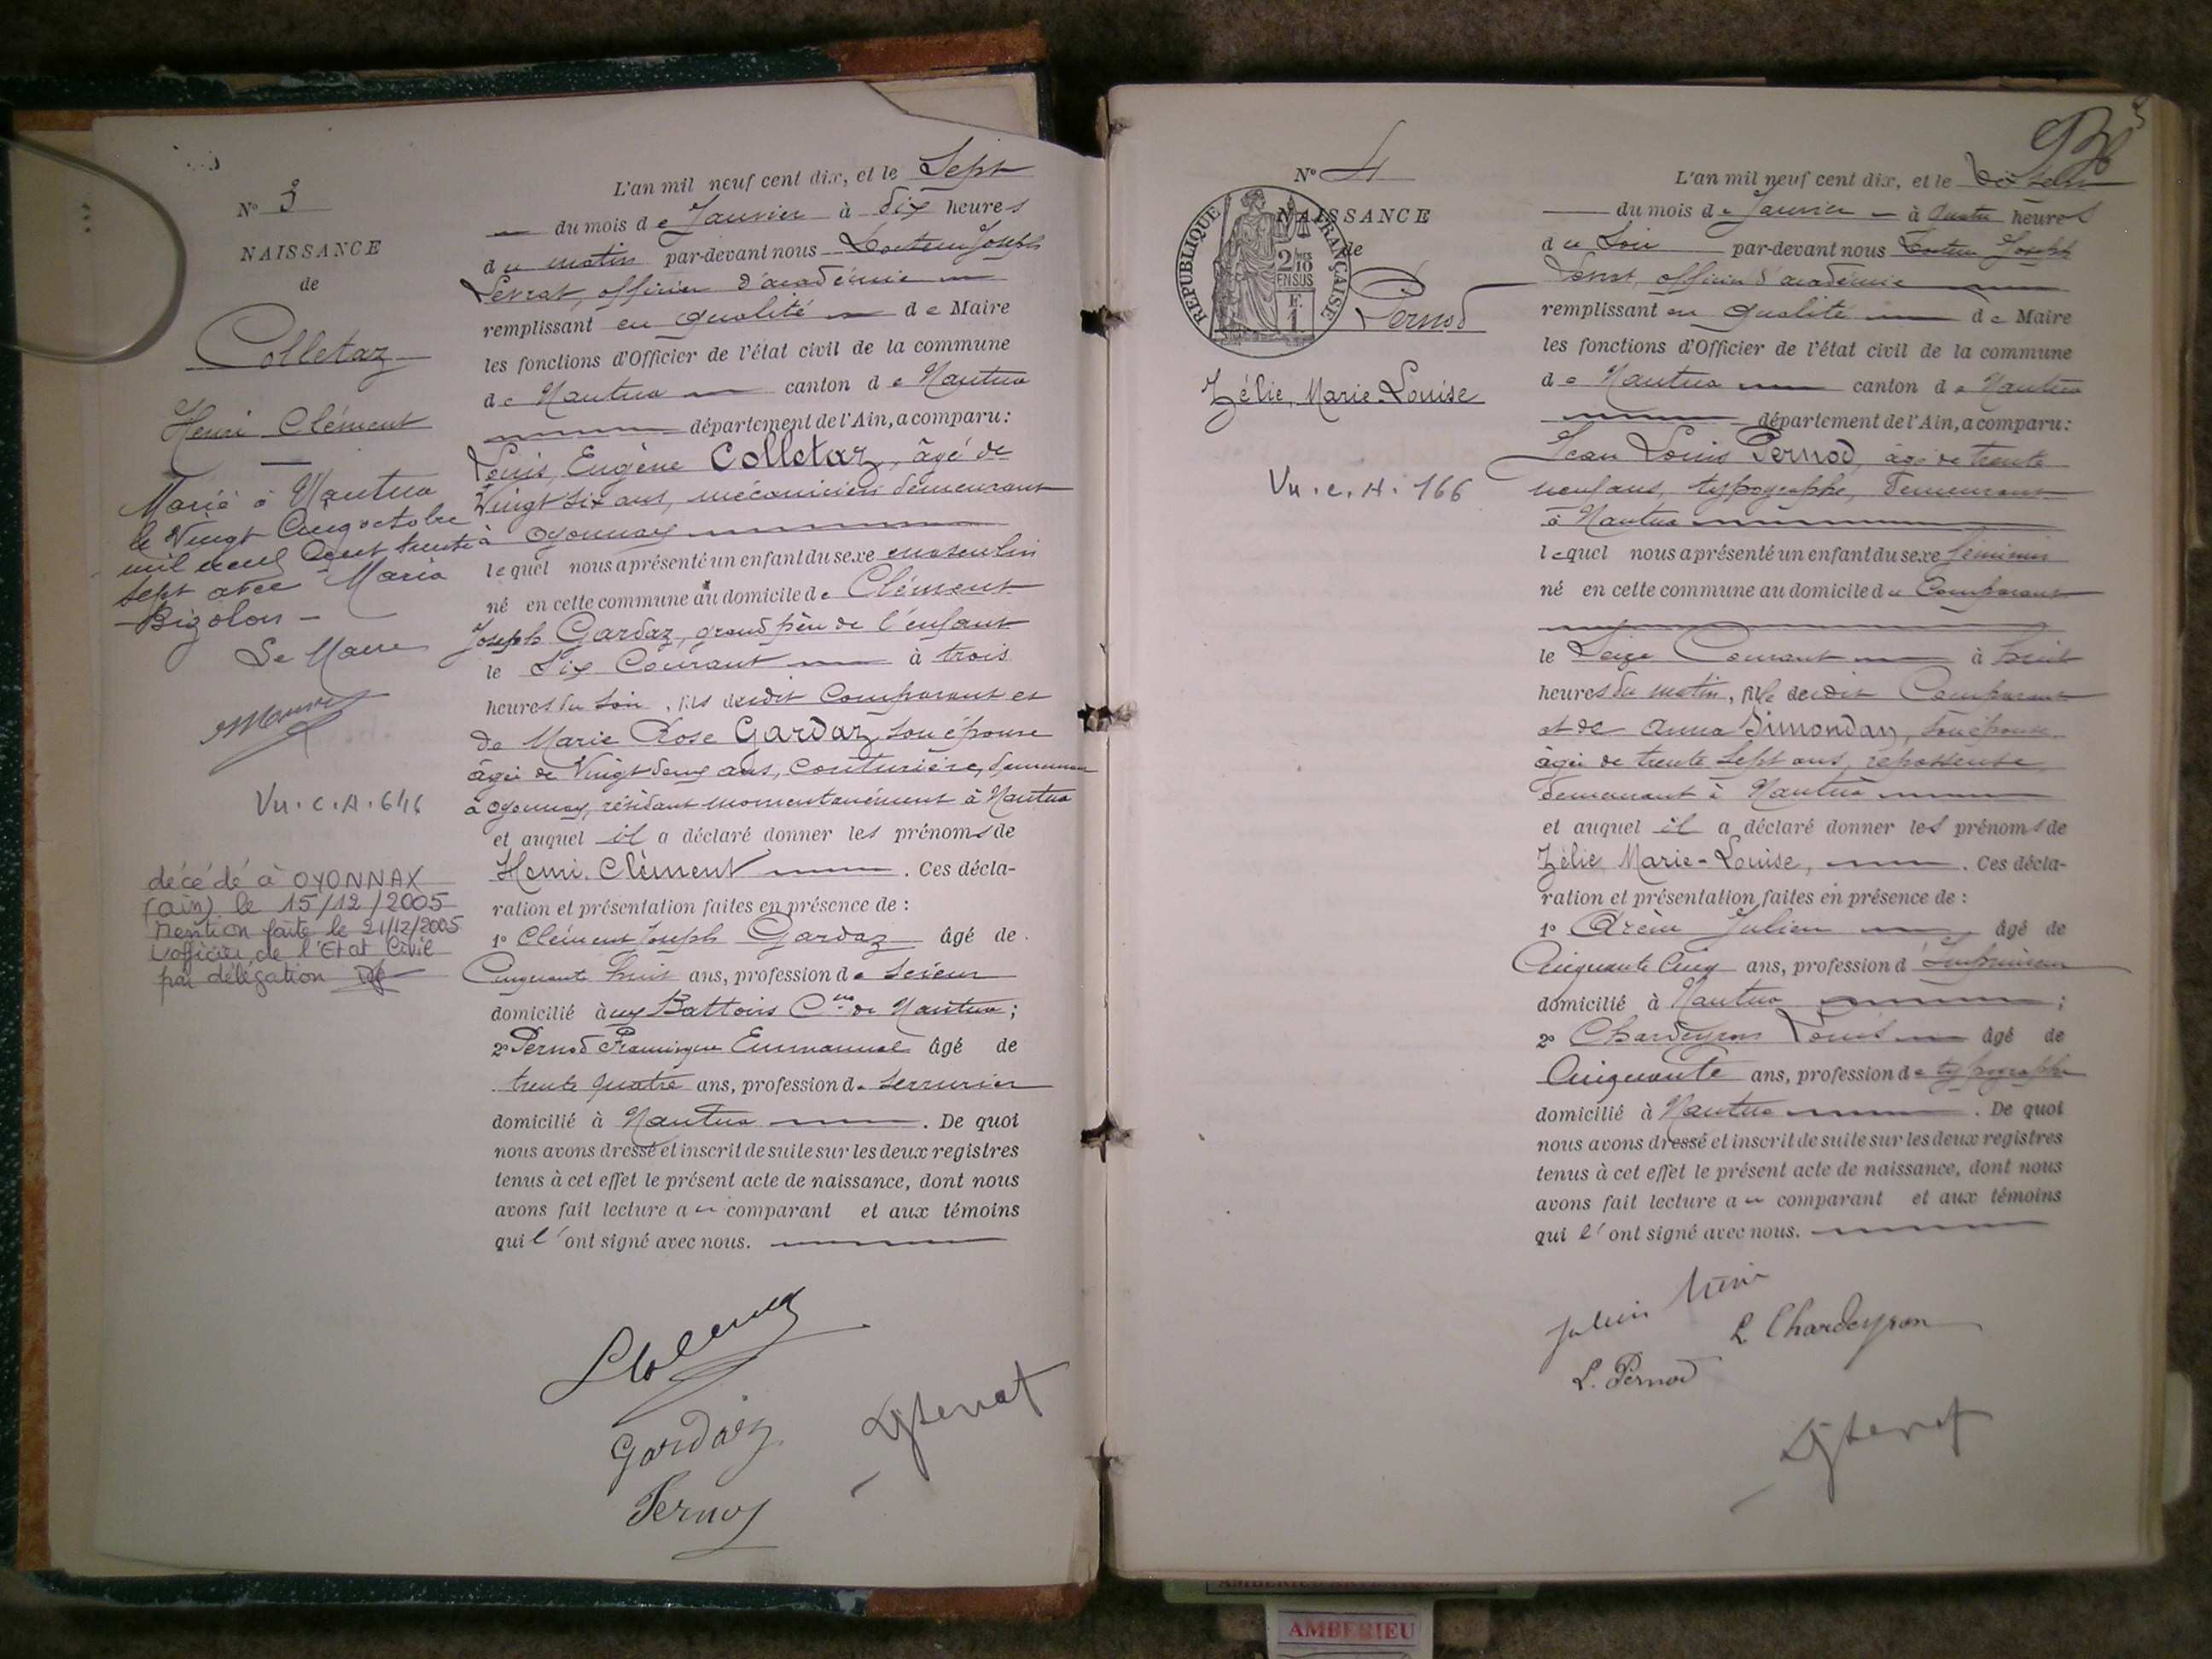 N° 3
NAISSANCE
de
Colletaz
Henri Clément
Marié à Nantua
le Vingt Cinq octobre
mil neuf Cent trente
sept avec Maria
Bizolon -
Le Maire
Vu.C.A.646
décédé à OYONNAX
(ain) le 15/12/2005
mention faite le 21/12/2005
L'officier de l'Etat Civil
par délégation
L'an mil neuf cent dix, et le Sept
du mois de Janvier à dix heures
du matin par-devant nous Docteur Joseph
officier d'académie
remplissant en qualité de Maire
les fonctions d'Officier de l'état civil de la commune
de Nantua canton de Nantua
département de l'Ain, a comparu :
Louis, Eugène Colletaz, âgé de
Vingt six ans, mécanicien demeurant
à oyonnax
lequel nous a présenté un enfant du sexe masculin
né en cette commune au domicile de Clément
Joseph Gardaz, grand père de l'enfant
le Six Courant à trois
heures du soir, fils dudit Comparant et
de Marie Rose Gardaz son épouse
âgée de Vingt deux ans, Couturière, demeurant
à oyonnax, résidant momentanément à Nantua
et auquel il a déclaré donner les prénoms de
Henri Clément . Ces décla-
ration et présentation faites en présence de :
1° Clément Joseph Gardaz âgé de
Cinquante huit ans, profession de Scieur
domicilié aux Battoirs Cne de Nantua ;
2° Pernod Francisque Emmanuel âgé de
trente quatre ans, profession de serrurier
domicilié à Nantua . De quoi
nous avons dressé et inscrit de suite sur les deux registres
tenus à cet effet le présent acte de naissance, dont nous
avons fait lecture au comparant et aux témoins
qui l'ont signé avec nous.
Gardaz
Pernod
N° 4
NAISSANCE
de
RÉPUBLIQUE FRANÇAISE
2/10 EN SUS
F. 1
Pernod
Zélie, Marie-Louise
Vu.C.A.166
L'an mil neuf cent dix, et le
du mois de Janvier à quatre heures
du Soir par-devant nous Docteur Joseph
officier d'académie
remplissant en qualité de Maire
les fonctions d'Officier de l'état civil de la commune
de Nantua canton de Nantua
département de l'Ain, a comparu :
Jean Louis Pernod, âgé de trente
neuf ans, typographe, demeurant
à Nantua
lequel nous a présenté un enfant du sexe féminin
né en cette commune au domicile du Comparant
le Seize Courant à huit
heures du matin, fille dudit Comparant
et de Anna Simondan, son épouse
âgée de trente sept ans, repasseuse,
demeurant à Nantua
et auquel il a déclaré donner les prénoms de
Zélie, Marie-Louise, . Ces décla-
ration et présentation faites en présence de :
1° Arène Julien âgé de
Cinquante Cinq ans, profession d'Imprimeur
domicilié à Nantua ;
2° Chardeyron Louis âgé de
Cinquante ans, profession de typographe
domicilié à Nantua . De quoi
nous avons dressé et inscrit de suite sur les deux registres
tenus à cet effet le présent acte de naissance, dont nous
avons fait lecture au comparant et aux témoins
qui l'ont signé avec nous.
Julien Arène
L. Chardeyron
L. Pernod
AMBERIEU